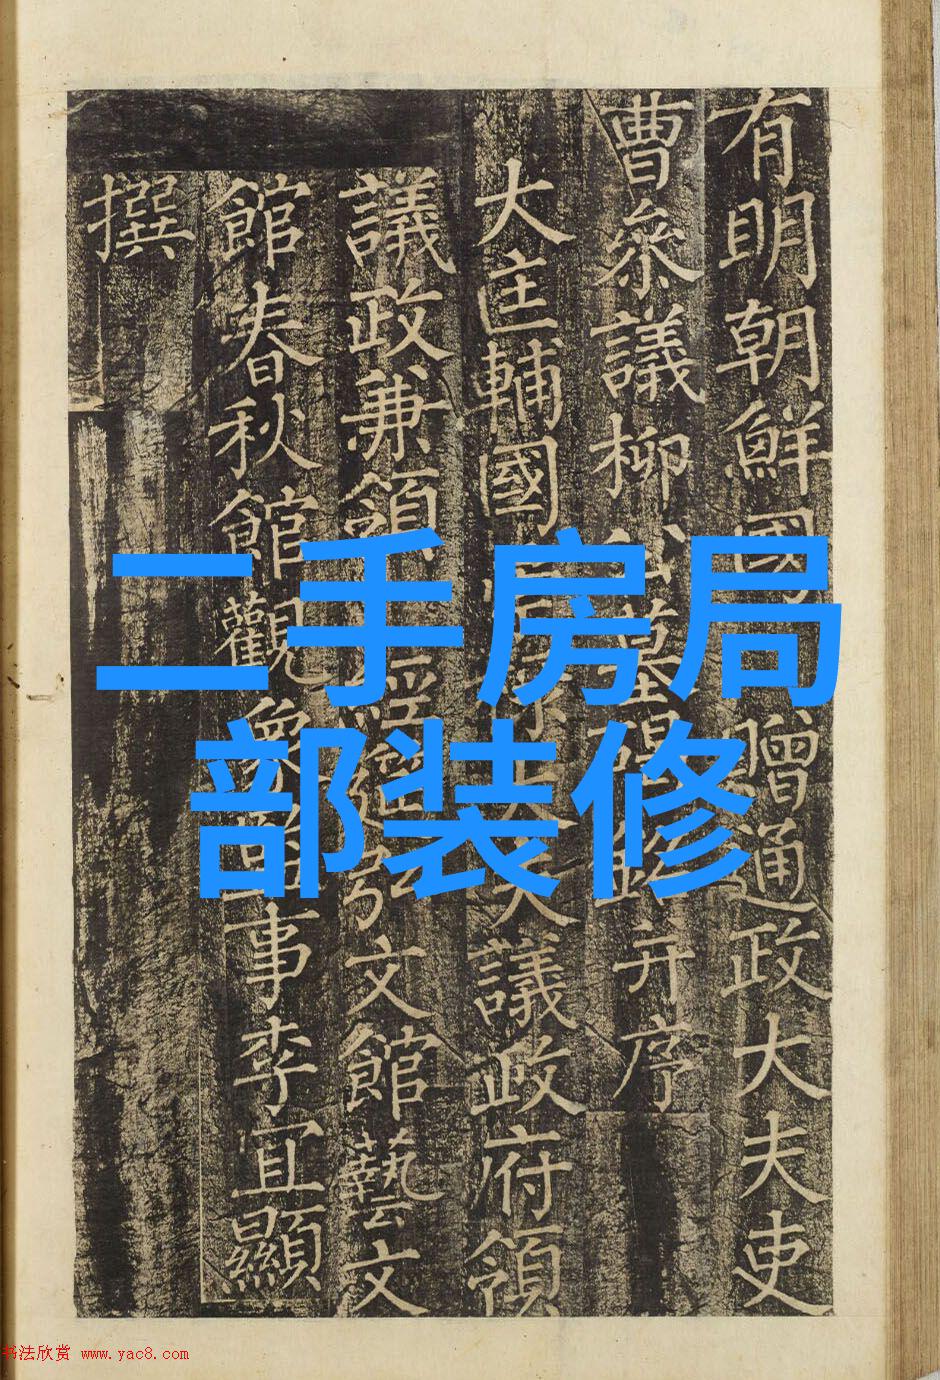 有明朝鮮國贈通政大夫吏
曹參議柳公墓碣銘并序
大匡輔國崇祿大夫議政府領
議政兼領經筵弘文館藝文
館春秋館觀象監事李宜顯
撰
二手房局
部装修
书法欣赏 www.yac8.com